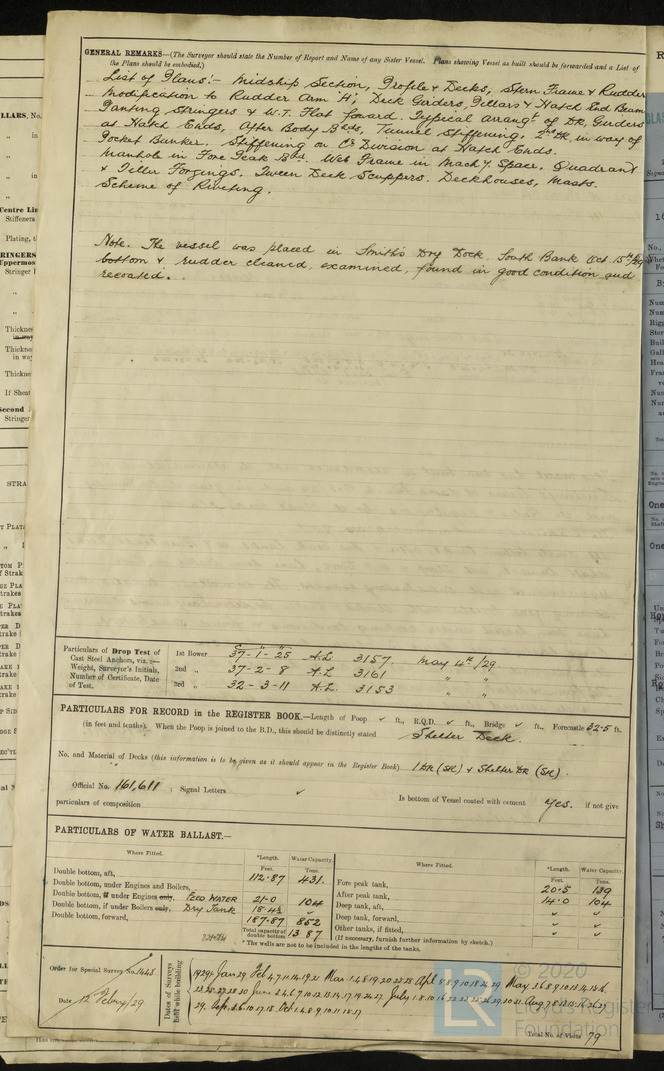 GENERAL REMARKS—(The Surveyor should state the Number of Report and Name of any Sister Vessel. Plans showing Vessel as built should be forwarded and a List of
the Plans should be embodied.)
List of Plans:- Midship Section, Profile & Decks, Stern Frame & Rudder
Modification to Rudder Arm 'A', Deck Girders, Pillars & Hatch End Beams
Panting Stringers & W.T. Flat forward. Typical arrangt of Dk. Girders
at Hatch Ends, After Body Bhds, Tunnel Stiffening, 2nd Dk in way of
Pocket Bunker. Stiffening on Cr Division at Hatch Ends.
Manhole in Fore Peak Bhd. Web Frame in Machy. Space. Quadrant
& Tiller Forgings. Tween Deck Scuppers. Deckhouses, Masts.
Scheme of Riveting.
Note. The vessel was placed in Smith's Dry Dock, South Bank Oct. 15th/29
bottom & rudder cleaned, examined, found in good condition and
recoated.
Particulars of Drop Test of
Cast Steel Anchors, viz.:—
Weight, Surveyor's Initials,
Number of Certificate, Date
of Test.
1st Bower 37-1-25 A.L. 3157. May 4th/29
2nd „ 37-2-8 A.L. 3161 „ „
3rd „ 32-3-11 A.L. 3153 „ „
PARTICULARS FOR RECORD in the REGISTER BOOK.—Length of Poop ✓ ft., R.Q.D. ✓ ft., Bridge ✓ ft., Forecastle 32.5 ft.
(in feet and tenths). When the Poop is joined to the B.D., this should be distinctly stated Shelter Deck.
No. and Material of Decks (this information is to be given as it should appear in the Register Book) 1 DK (Stl) & Shelter DK (Stl).
Official No. 161,611 ; Signal Letters ✓ Is bottom of Vessel coated with cement Yes. if not give
particulars of composition
PARTICULARS OF WATER BALLAST.—
Where Fitted. *Length. Water Capacity. Where Fitted. *Length. Water Capacity.
Feet. Tons. Feet. Tons.
Double bottom, aft, 112.87 431. Fore peak tank, 20.5 139
Double bottom, under Engines and Boilers, After peak tank, 14.0 104
Double bottom, if under Engines only, FEED WATER 21.0 104 Deep tank, aft, ✓ ✓
Double bottom, if under Boilers only, Dry Tank Deep tank, forward, ✓ ✓
Double bottom, forward, 187.87 852 Other tanks, if fitted, ✓ ✓
Total capacity of double bottom 1387 (If necessary, furnish further information by sketch.)
* The wells are not to be included in the lengths of the tanks.
Order for Special Survey No. 1448
Date 12 Febry/29
Dates of Surveys held while building
Total No. of Visits 79
© 2020
Lloyd's Register
Foundation